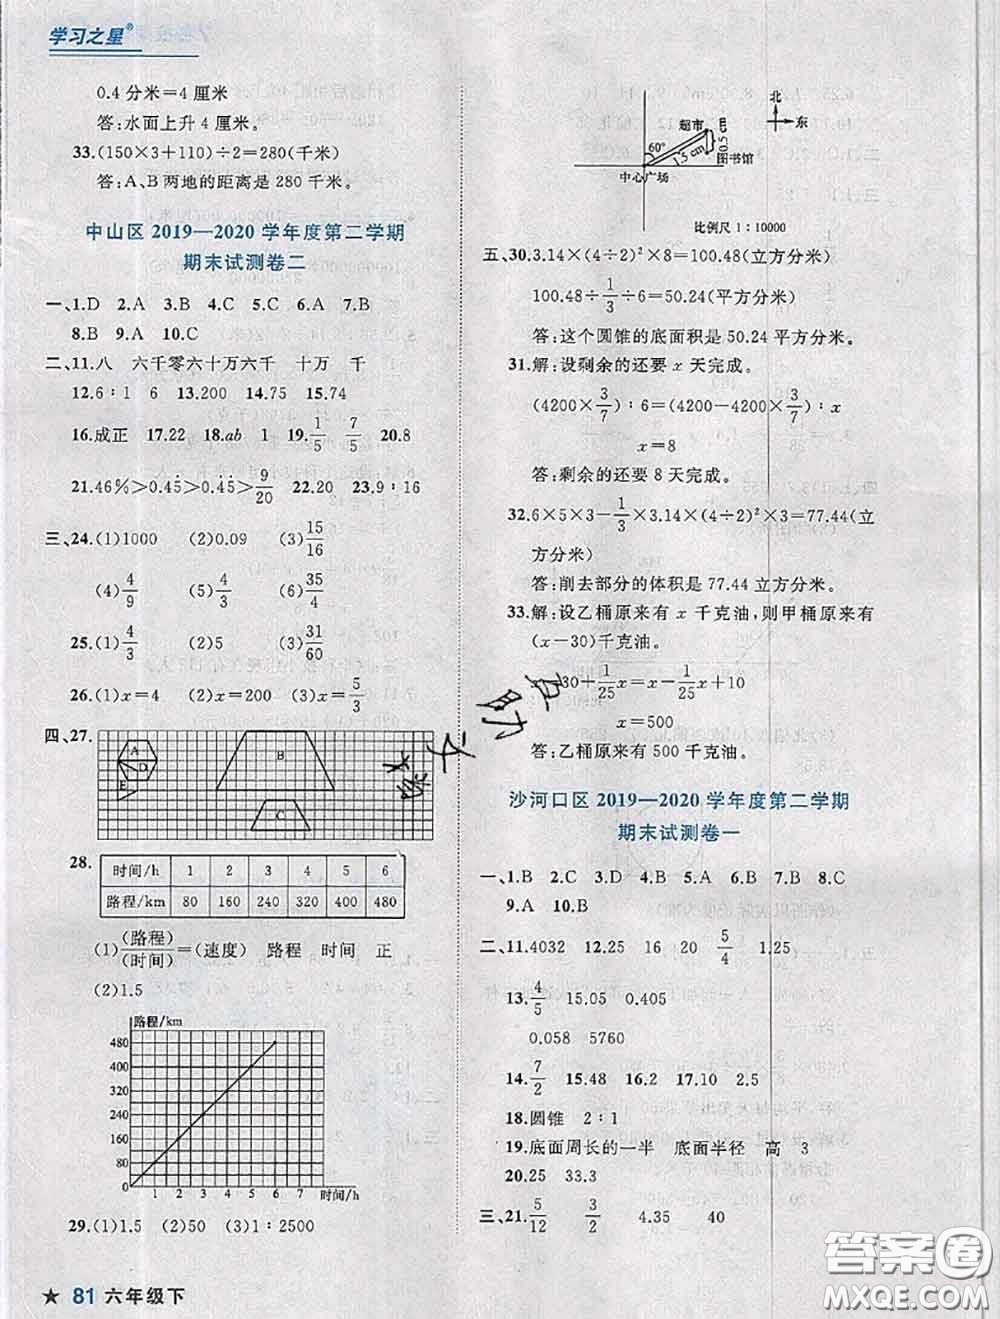 学习之星®
0.4分米=4厘米
答:水面上升4厘米。
33.(150×3+110)÷2=280(千米)
答:A、B两地的距离是280千米。
中山区2019—2020学年度第二学期
期末试测卷二
一、1.D 2.A 3.B 4.C 5.C 6.A 7.B
8.B 9.A 10.C
二、11.八 六千零六十万六千 十万 千
12.6∶1 6 13.200 14.750 15.74
16.成正 17.22 18.ab 1 19.1/5 7/5 20.8
21.46%>0.45̇>0.4̇5̇>9/20 22.20 23.9∶16
三、24.(1)1000 (2)0.09 (3)15/16
(4)4/9 (5)4/3 (6)35/4
25.(1)4/3 (2)5 (3)31/60
26.(1)x=4 (2)x=200 (3)x=5/3
四、27.
A
D
E
B
C
28.
时间/h 1 2 3 4 5 6
路程/km 80 160 240 320 400 480
(1)(路程)/(时间)=(速度) 路程 时间 正
(2)1.5
路程/km
480
400
320
240
160
80
0 1 2 3 4 5 6 7 时间/h
29.(1)1.5 (2)50 (3)1∶2500
北
东
超市
60°
1.5 cm
0.5 cm
图书馆
中心广场
比例尺 1∶10000
五、30.3.14×(4÷2)²×8=100.48(立方分米)
100.48÷1/3÷6=50.24(平方分米)
答:这个圆锥的底面积是50.24平方分米。
31.解:设剩余的还要x天完成。
(4200×3/7)∶6=(4200-4200×3/7)∶x
x=8
答:剩余的还要8天完成。
32.6×5×3-1/3×3.14×(4÷2)²×3=77.44(立
方分米)
答:削去部分的体积是77.44立方分米。
33.解:设乙桶原来有x千克油,则甲桶原来有
(x-30)千克油。
x-30+1/25x=x-1/25x+10
x=500
答:乙桶原来有500千克油。
沙河口区2019—2020学年度第二学期
期末试测卷一
一、1.B 2.C 3.D 4.B 5.A 6.B 7.B 8.C
9.A 10.B
二、11.4032 12.25 16 20 5/4 1.25
13.4/5 15.05 0.405
0.058 5760
14.7/2 15.48 16.2 17.10 2.5
18.圆锥 2∶1
19.底面周长的一半 底面半径 高 3
20.25 33.3
三、21.5/12 3/2 4.35 40
★ 81 六年级下
答案圈
MXQE.COM